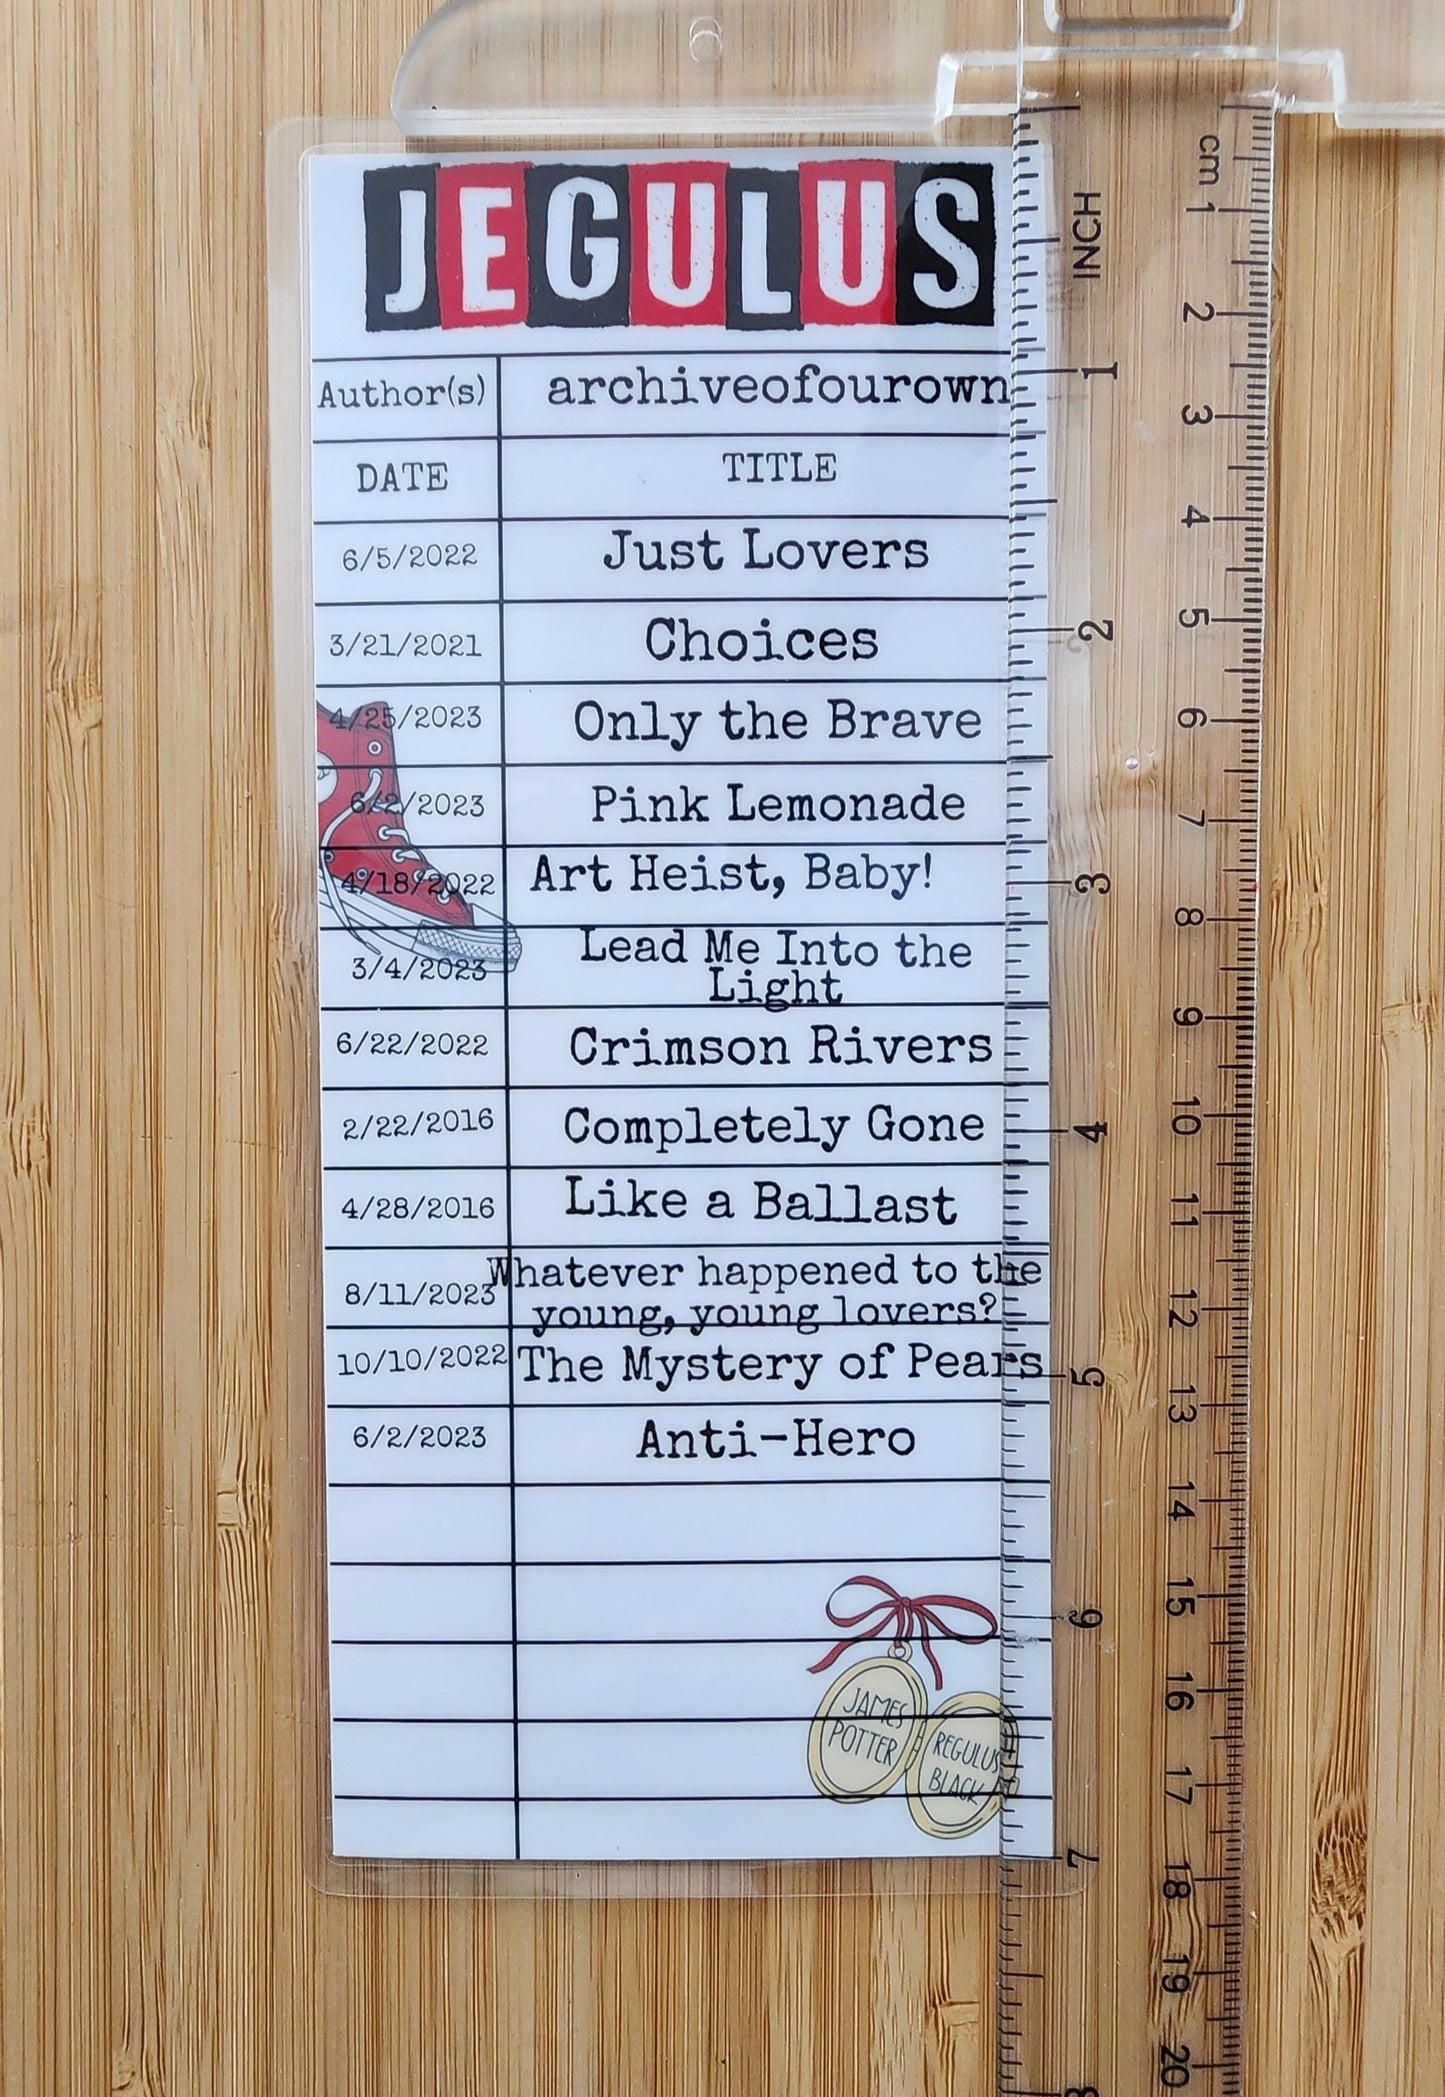 JEGULUS
Author(s) archiveofourown
DATE TITLE
6/5/2022 Just Lovers
3/21/2021 Choices
4/25/2023 Only the Brave
6/2/2023 Pink Lemonade
4/18/2022 Art Heist, Baby!
3/4/2023 Lead Me Into the
Light
6/22/2022 Crimson Rivers
2/22/2016 Completely Gone
4/28/2016 Like a Ballast
8/11/2023 Whatever happened to the
young, young lovers?
10/10/2022 The Mystery of Pears
6/2/2023 Anti-Hero
JAMES
POTTER
REGULUS
BLACK
INCH
1
2
3
4
5
6
7
8
cm
1
2
3
4
5
6
7
8
9
10
11
12
13
14
15
16
17
18
19
20